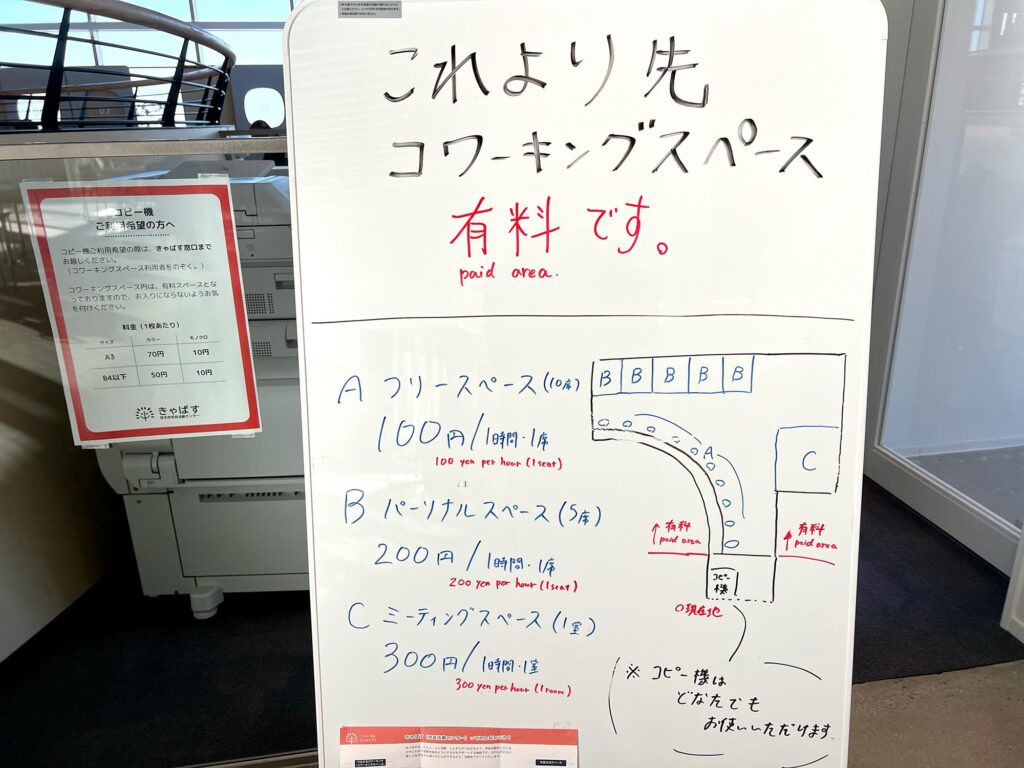 これより先
コワーキングスペース
有料です。
paid area.
A フリースペース(10席)
100円/1時間・1席
100 yen per hour (1seat)
B パーソナルスペース(5席)
200円/1時間・1席
200 yen per hour (1seat)
C ミーティングスペース(1室)
300円/1時間・1室
300 yen per hour (1room)
B B B B B
A
C
↑有料
paid area
↑有料
paid area
コピー機
○現在地
※ コピー機は
どなたでも
お使いいただけます。
コピー機
ご利用希望の方へ
コピー機ご利用希望の際は、きゃぱす窓口まで
お越しください。
(コワーキングスペース利用者をのぞく。)
コワーキングスペース内は、有料スペースとな
っておりますので、お入りにならないようお気
を付けください。
料金(1枚あたり)
サイズ カラー モノクロ
A3 70円 10円
B4以下 50円 10円
きゃぱす